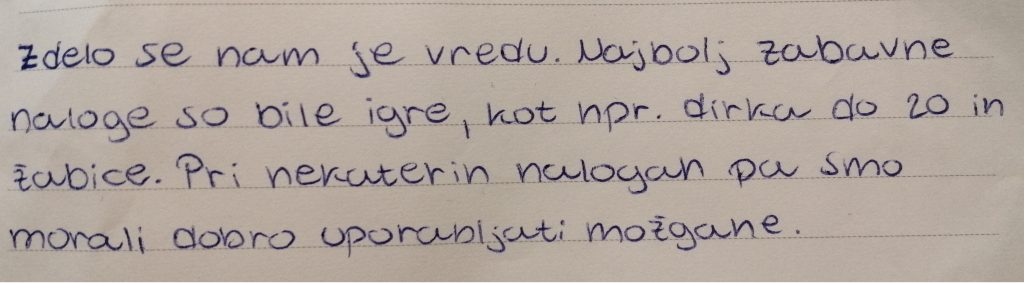 Zdelo se nam je vredu. Najbolj zabavne
naloge so bile igre, kot npr. dirka do 20 in
žabice. Pri nekaterin nalogah pa smo
morali dobro uporabljati možgane.